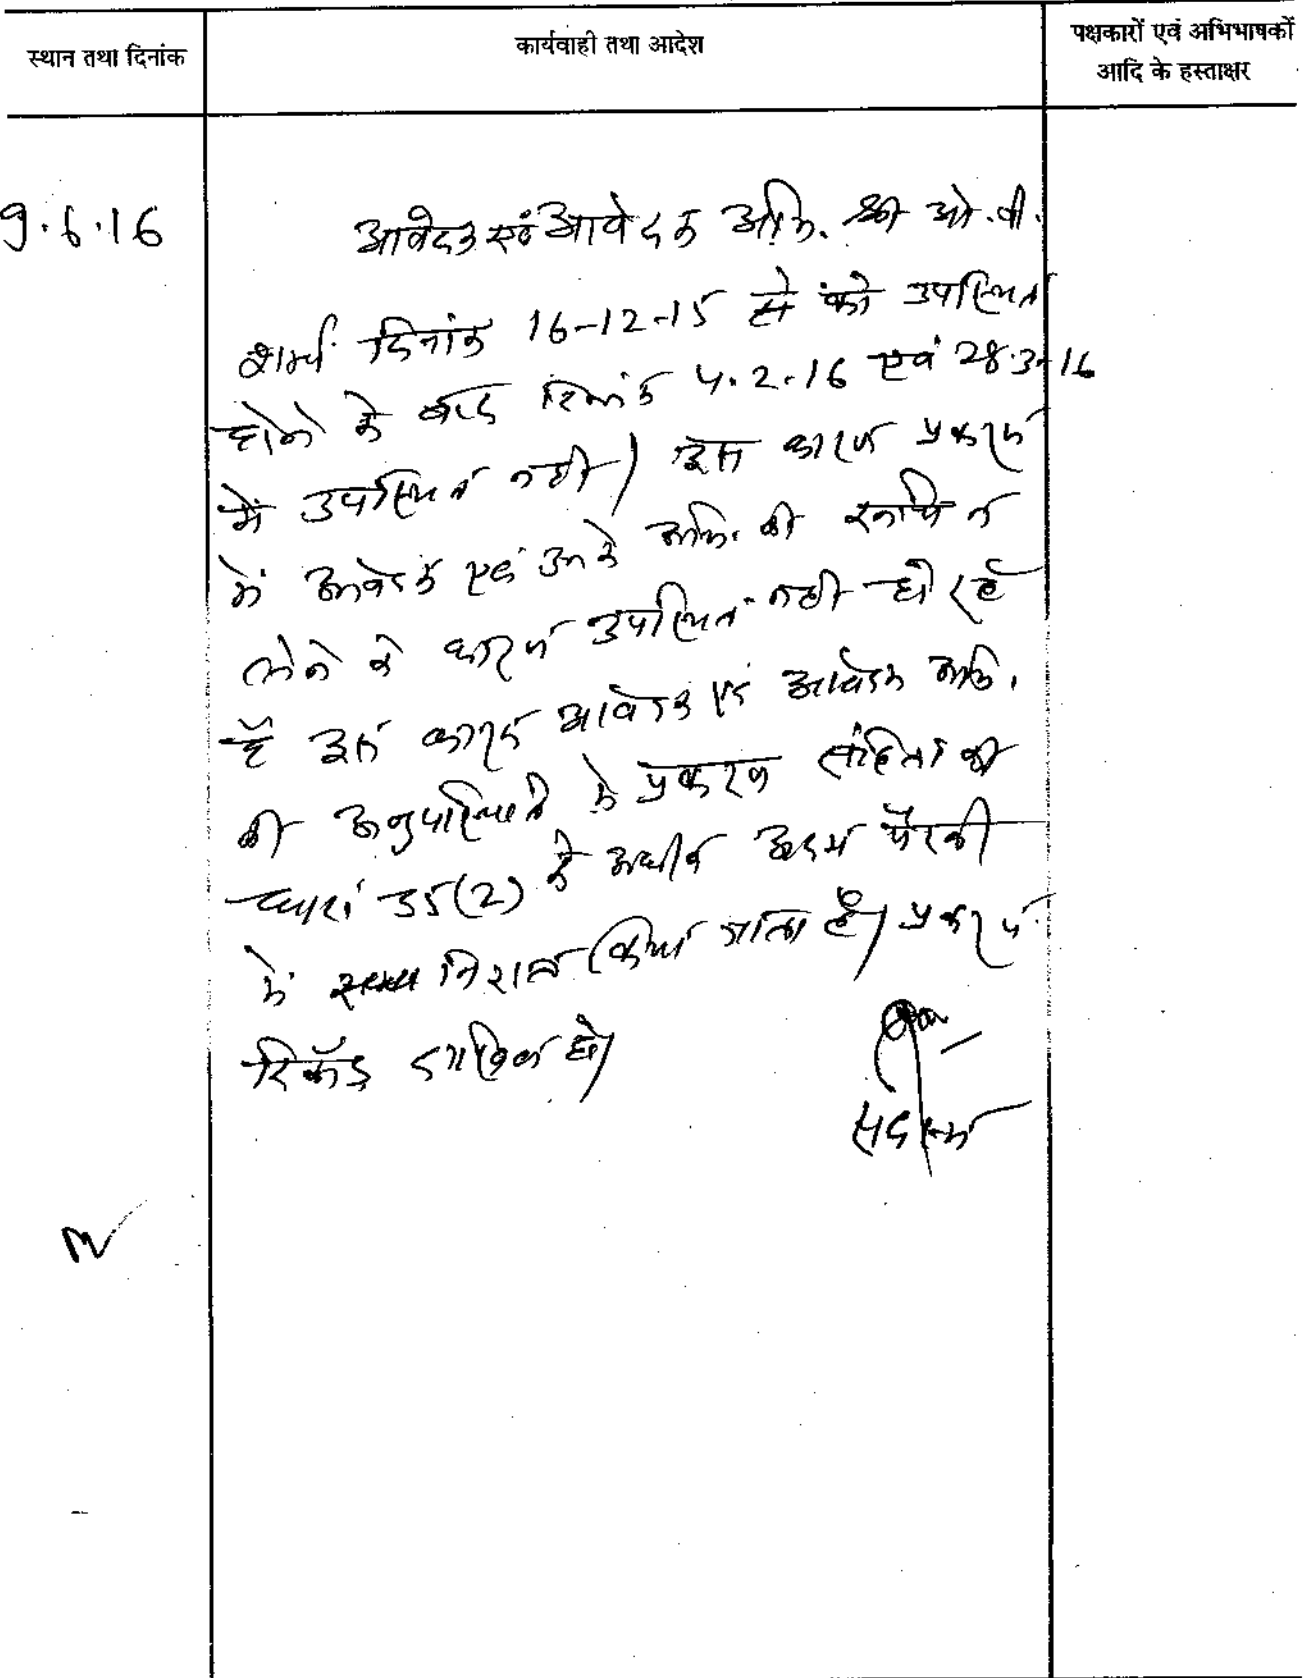 स्थान तथा दिनांक
कार्यवाही तथा आदेश
पक्षकारों एवं अभिभाषकों
आदि के हस्ताक्षर
9.6.16
आवेदक एवं आवेदक अभि. श्री ओ.पी.
शर्मा दिनांक 16-12-15 को उपस्थित
होने के बाद दिनांक 4.2.16 एवं 28.3.16
में उपस्थित नहीं। इस कारण प्रकरण
में आवेदक एवं उनके अभि. की रूचि न
लेने के कारण उपस्थित नहीं हो रहे
हैं इस कारण आवेदक एवं आवेदक अभि.
की अनुपस्थिति में प्रकरण संहिता की
धारा 35(2) के अधीन अदम पैरवी
में निरस्त किया जाता है। प्रकरण
रिकॉर्ड दाखिल हो।
सदस्य